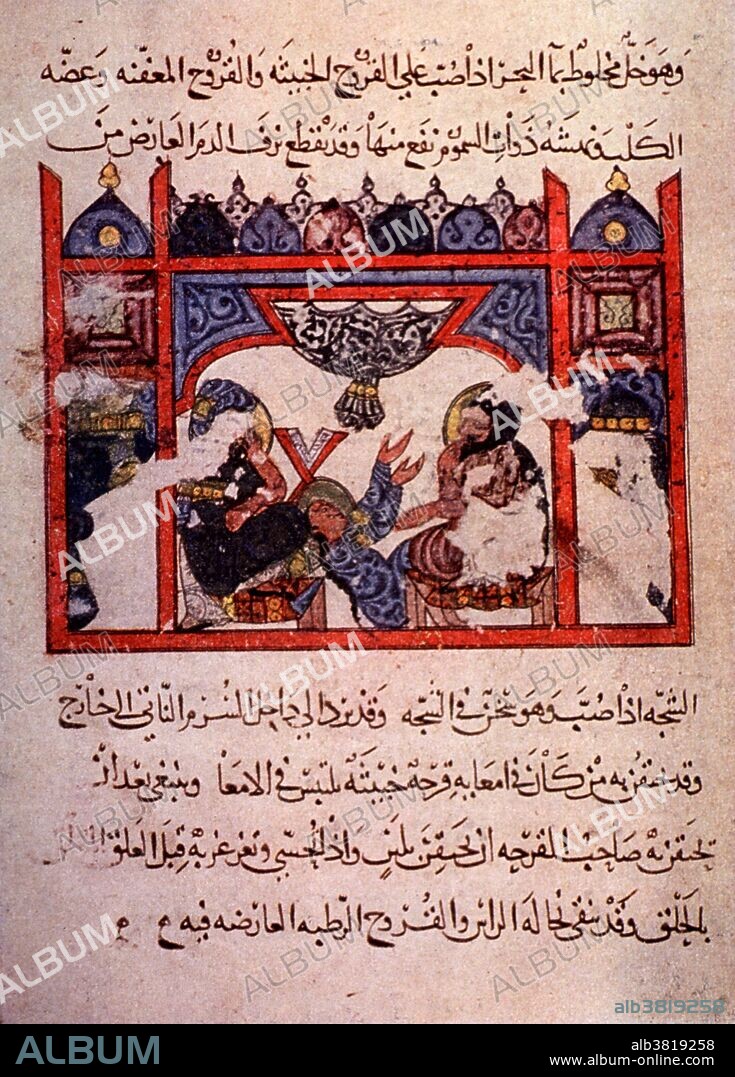 وهو خل مخلوط بماء البحر اذا صب علي القروح الخبيثه والقروح المعفنه وعضه
الكلب ونهشه ذوات السموم نفع منها وقد يقطع نزف الدم العارض من
الشجه اذا صب وهو سخن في الشجه وقد يرد الي داخل السرم الناتي الي خارج
وقد يحتقن به من كان في امعايه قرحه خبيثه في الامعا وينبغي بعد ان
تحتقن به صاحب القرحه ان يحتقن بلبن واذا تحسي وتغرغر به قتل العلق
بالحلق وقد ينقي نخاله الراس والقروح الرطبه العارضه فيه
ALBUM
alb3819258
ALBUM
alb3819258
www.album-online.com